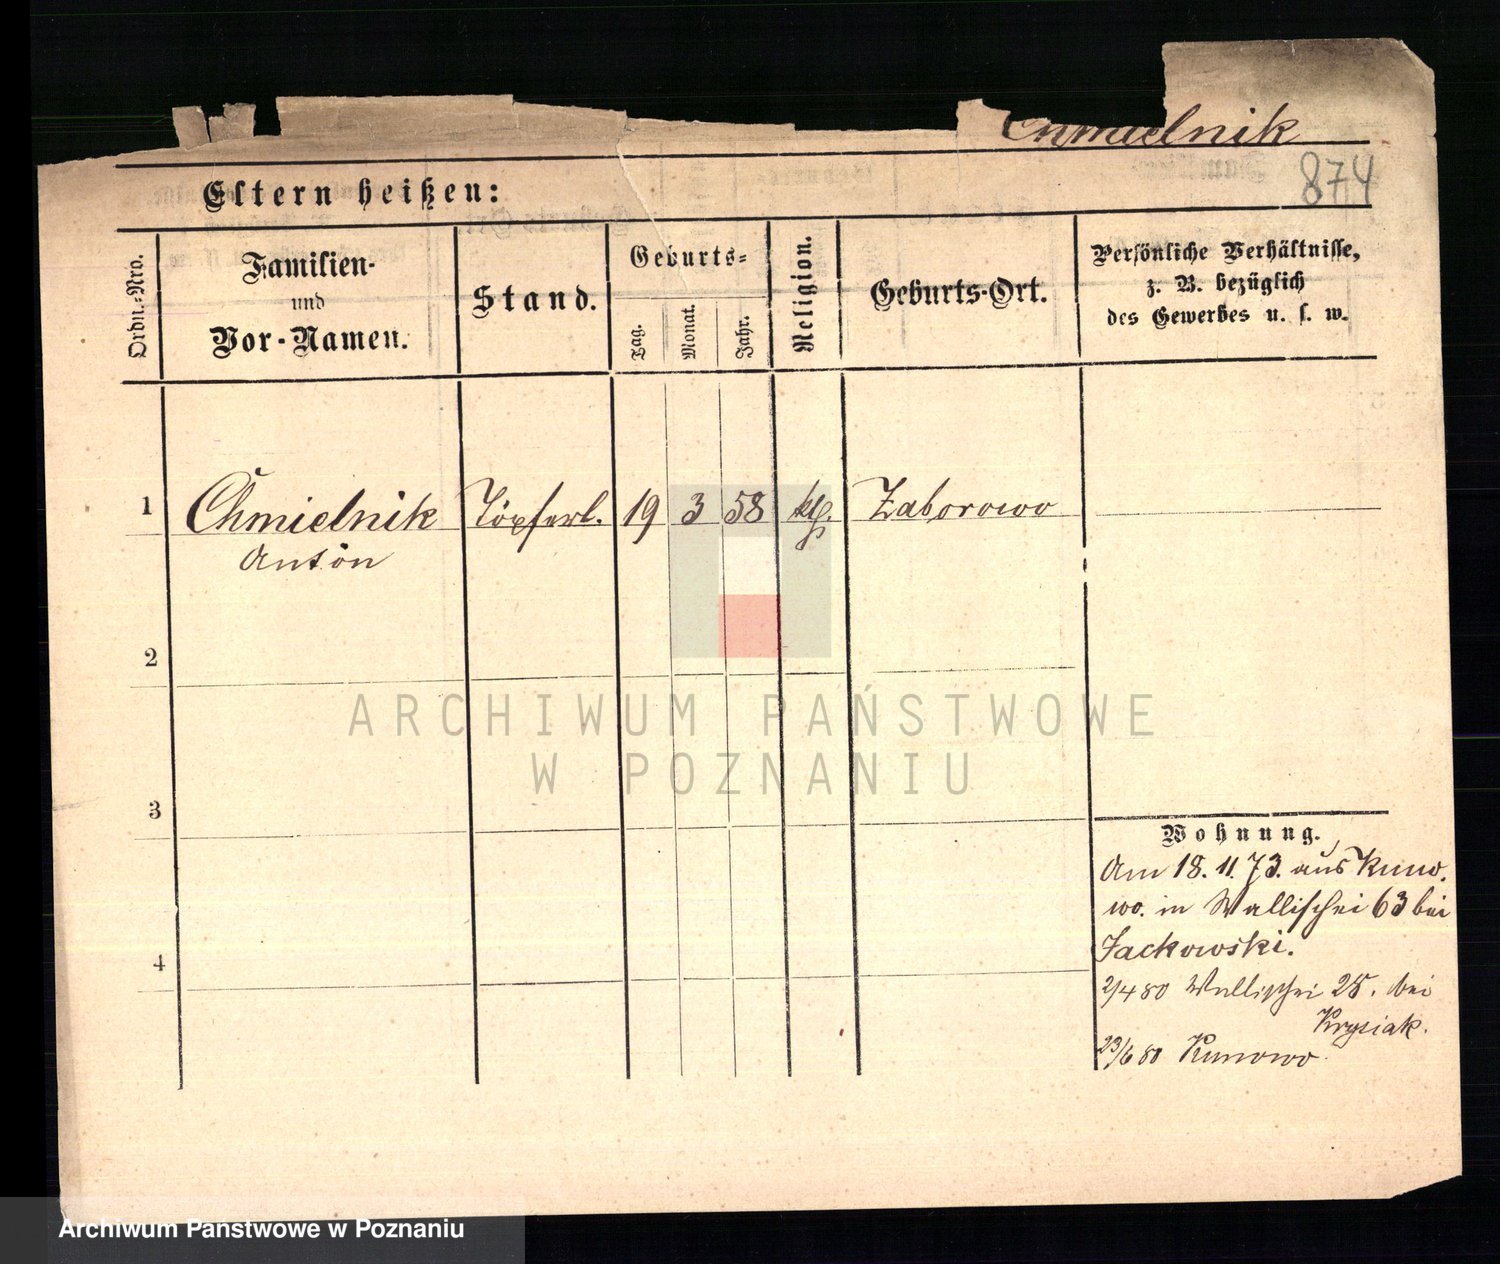 Chmielnik
874
Eltern heißen:
Ordn.-Nro.
Familien-
und
Vor-Namen.
Stand.
Geburts-
Tag.
Monat.
Jahr.
Religion.
Geburts-Ort.
Persönliche Verhältnisse,
z. B. bezüglich
des Gewerbes u. s. w.
1 Chmielnik Töpferl. 19 3 58 kth. Zaborowo
Anton
2
3
4
Wohnung.
Am 18. 11. 73. aus Kuno-
wo. in Wallischei 63 bei
Jackowski.
2/4 80 Wallischei 25. bei
Krysiak.
23/6 80 Kunowo.
ARCHIWUM PAŃSTWOWE
W POZNANIU
Archiwum Państwowe w Poznaniu